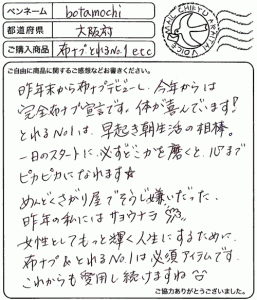 ペンネーム botamochi
都道府県 大阪府
ご購入商品 布ナプ とれるNo.1 etc
MAIL CHIEYU NATURAL VOICE
ご自由に商品に関するご感想などお書きください。
昨年末から布ナプデビューし、今年からは
完全布ナプ宣言です。体が喜んでいます!
とれるNo1は、早起き朝生活の相棒。
一日のスタートに必ずどこかを磨くと、心まで
ピカピカになれます☆
めんどくさがり屋でそうじ嫌いだった
昨年の私にはサヨウナラ
女性としてもっと輝く人生にするために
布ナプ&とれるNo1は必須アイテムです。
これからも愛用し続けますね
ご協力ありがとうございました。